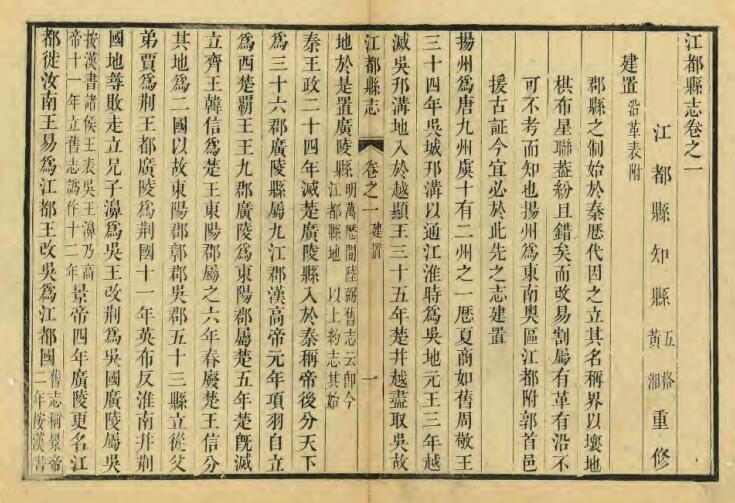 江都縣志卷之一
江都縣知縣五格黃湘重修
建置沿革表附
郡縣之制始於秦歷代因之立其名稱界以壤地
棋布星聯葢紛且錯矣而改易割屬有革有沿不
可不考而知也揚州爲東南奧區江都附郭首邑
援古証今宜必於此先之志建置
揚州爲唐九州虞十有二州之一歷夏商如舊周敬王
三十四年吳城邗溝以通江淮時爲吳地元王三年越
滅吳邗溝地入於越顯王三十五年楚并越盡取吳故
地於是置廣陵縣明萬歷間陸弼舊志云卽今江都縣地以上約志其始
江都縣志 卷之一 建置 一
秦王政二十四年滅楚廣陵縣入於秦稱帝後分天下
爲三十六郡廣陵縣屬九江郡漢高帝元年項羽自立
爲西楚覇王王九郡廣陵爲東陽郡屬楚五年楚旣滅
立齊王韓信爲楚王東陽郡屬之六年春廢楚王信分
其地爲二國以故東陽郡鄣郡吳郡五十三縣立從父
弟賈爲荆王都廣陵爲荆國十一年英布反淮南并荆
國地尋敗走立兄子濞爲吳王改荆爲吳國廣陵屬吳
按漢書諸侯王表吳王濞乃高帝十一年立舊志譌作十二年景帝四年廣陵更名江
都徙汝南王易爲江都王改吳爲江都國舊志稱景帝二年按漢書